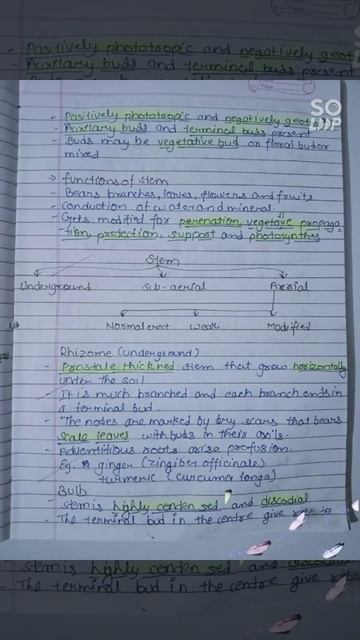 - Positively phototropic and negatively geot
- Auxelary buds and termined buss present
- Positively phototropic and negatively geot
SO
LOOP
- Auxelary buds and termined buss present
- Buds may be vegetative bud or floral bud or
mixed
→ functions of stem
- Bears branches, leaves, flowers and fruits
- Conduction of water and mineral
- Gets modified for perenation, vegetave propaga
-tion, protection, support and photosynthes
Stem
Underground Sub-aerial Aerial
Normal erect weak Modified
Rhizome (underground)
- Prostate thickned stem that grow horizontally
under the soil
- It is much branched and each branch ends in
a terminal bud.
- The nodes are marked by dry scars that bears
scale leaves with buds in their axils.
- Adventitious roots arise profusion.
Eg. ginger (zingiber officinale)
turmeric (curcuma longa)
Bulb
- Stem is highly conden sed and discodial
- The terminal bud in the centre give
stem is highly conden sed and
- The terminal bud in the centre give